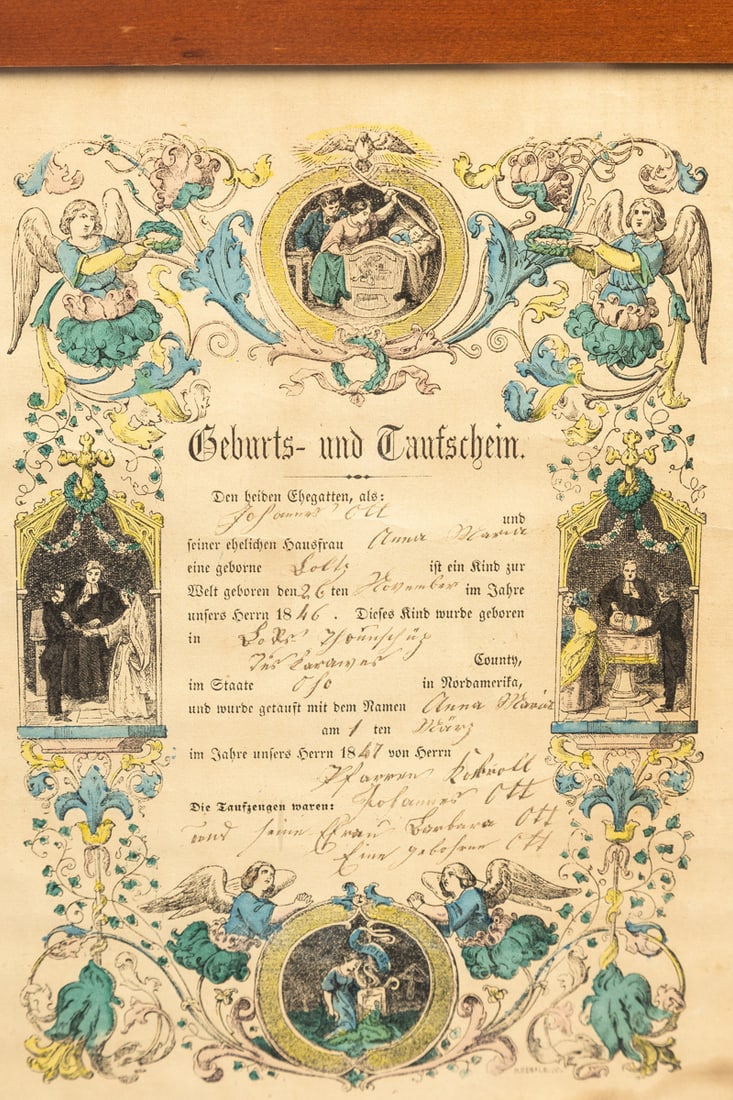 Geburts- und Taufschein.
Den beiden Ehegatten, als:
Johannes Ott und
seiner ehelichen Hausfrau Anna Maria
eine geborne Loltz ist ein Kind zur
Welt geboren den 26 ten November im Jahre
unsers Herrn 1846. Dieses Kind wurde geboren
in
Tuskarawes County,
im Staate Oho in Nordamerika,
und wurde getauft mit dem Namen Anna Maria
am 1 ten März
im Jahre unsers Herrn 1847 von Herrn
Pfarrer
Die Taufzeugen waren: Johannes Ott
und seine Frau Barbara Ott
Eine gebohrne Ott